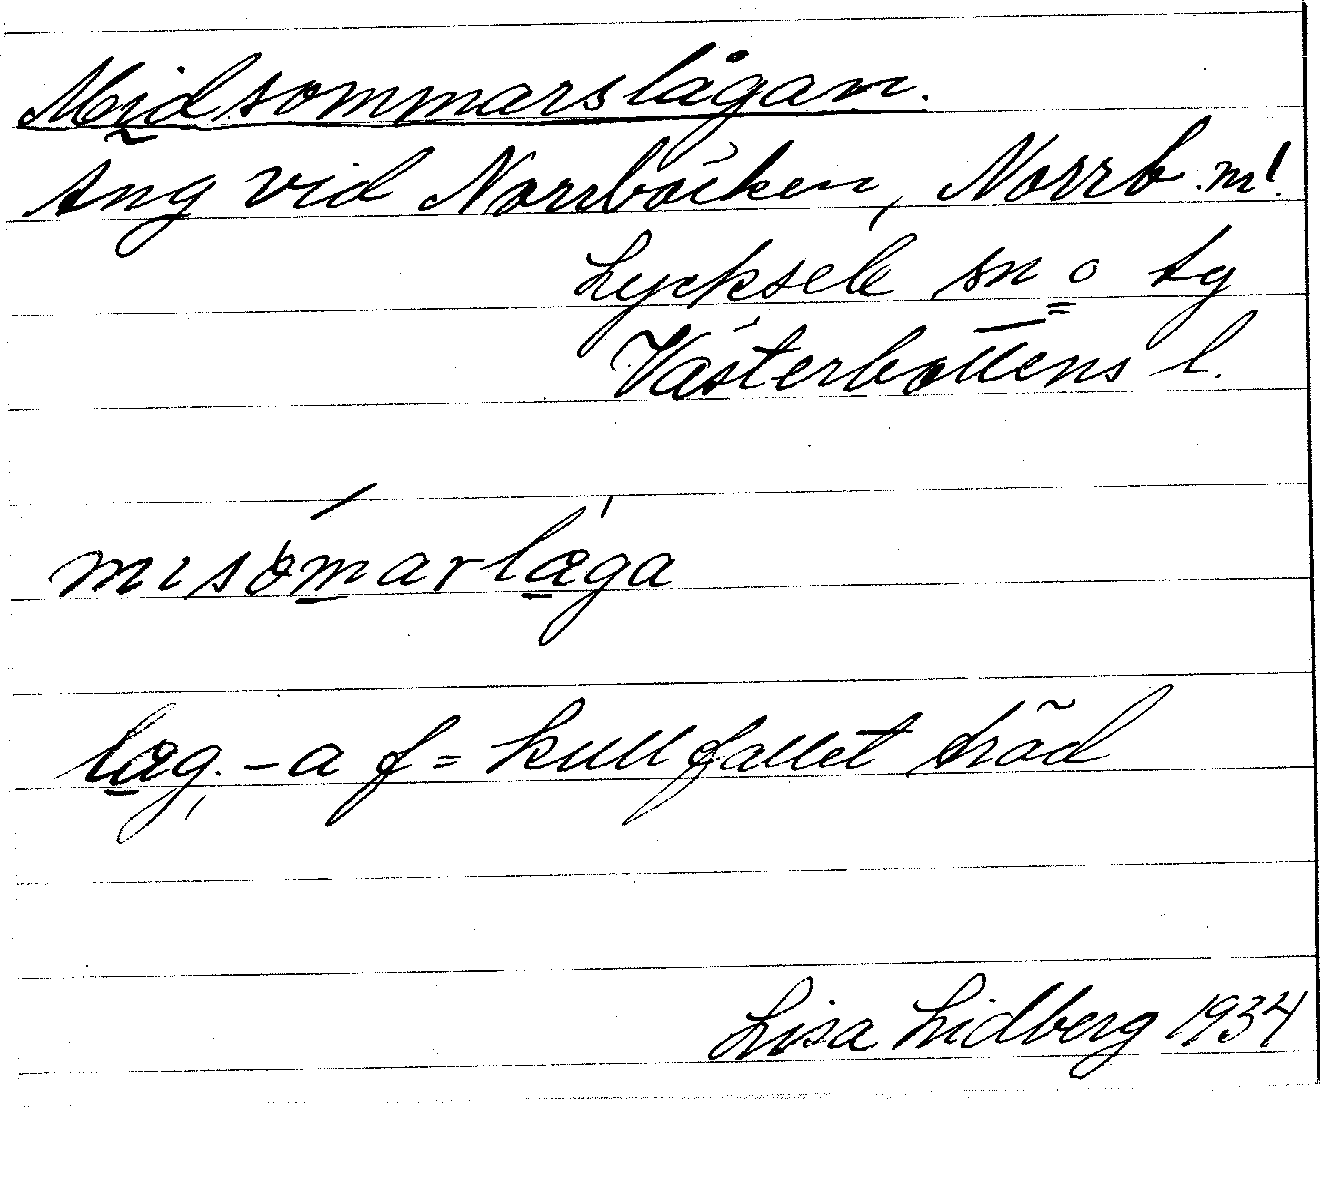 Midsommarslågan.
Äng vid Norrbäcken, Norrb.m!
Lycksele sn o tg
Västerbottens l.
misömarlæga
læg, -a f = kullfallet träd
Lisa Lidberg 1934